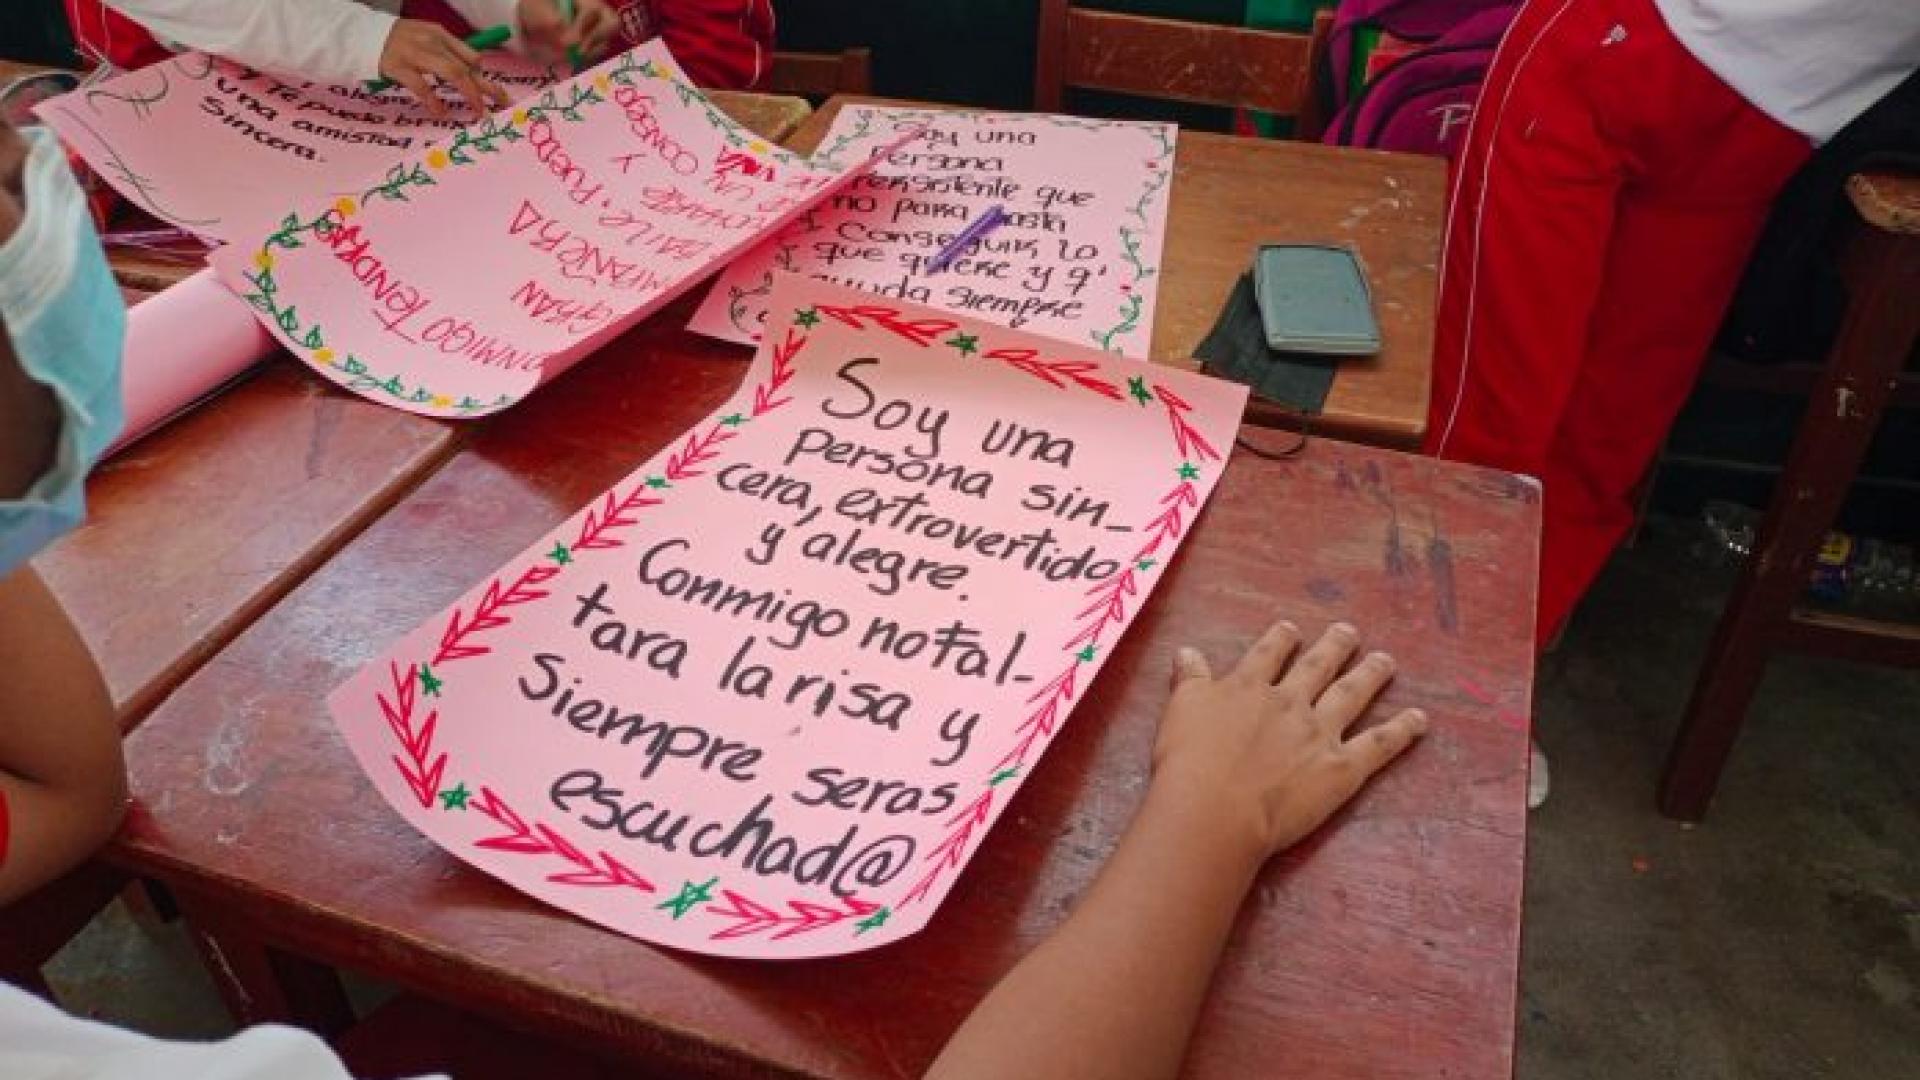 alegre,
y Te puedo brin
una amistad
Sincera.
CONMIGO TENDRAS
GRAN
MAÑERA
BAILE, PUEDO
Y
CONMIGO
UN
UNA
Soy una
Persona
Persistente que
no para hasta
Conseguir lo
que quiere y q'
ayuda siempre
Soy una
persona sin-
cera, extrovertido
y alegre.
Conmigo no fal-
tara la risa y
Siempre seras
escuchad@